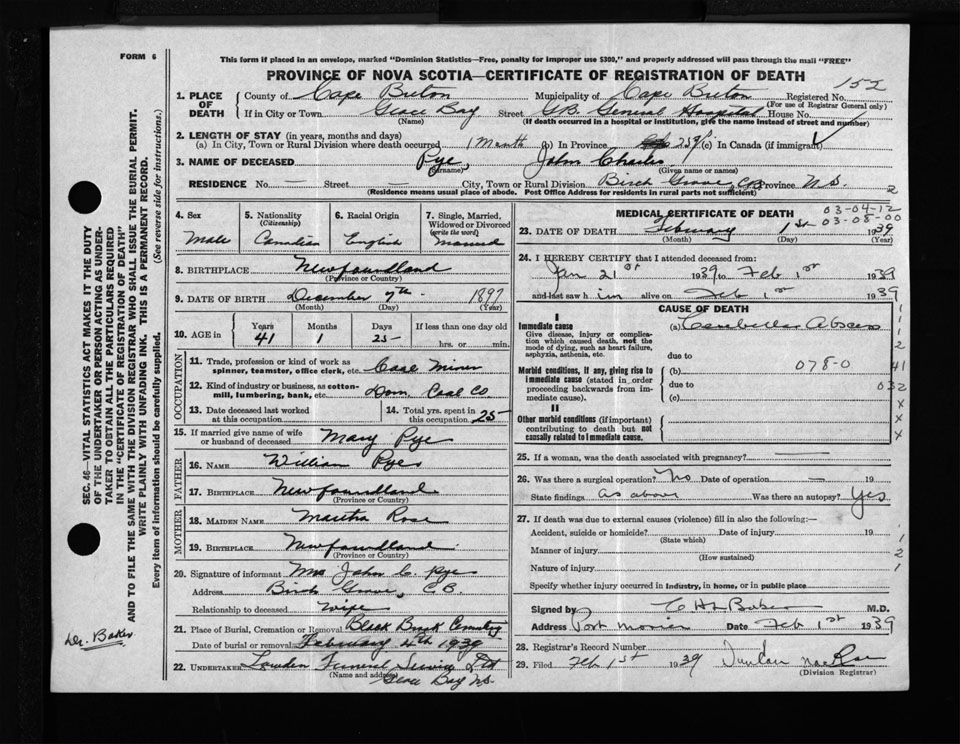 FORM 6
This form if placed in an envelope, marked "Dominion Statistics—Free, penalty for improper use $300," and properly addressed will pass through the mail "FREE"
PROVINCE OF NOVA SCOTIA—CERTIFICATE OF REGISTRATION OF DEATH
152
1. PLACE OF DEATH County of Cape Breton Municipality of Cape Breton Registered No.
(For use of Registrar General only)
If in City or Town Glace Bay Street C.B. General Hospital House No.
(Name) (If death occurred in a hospital or institution, give the name instead of street and number)
2. LENGTH OF STAY (in years, months and days)
(a) In City, Town or Rural Division where death occurred 1 Month (b) In Province (c) In Canada (if immigrant)
3. NAME OF DECEASED Pye, John Charles
(Surname) (Given name or names)
RESIDENCE No. — Street City, Town or Rural Division Birch Grove, C.B. Province N.S. 2
(Residence means usual place of abode. Post Office Address for residents in rural parts not sufficient)
4. Sex Male
5. Nationality (Citizenship) Canadian
6. Racial Origin English
7. Single, Married, Widowed or Divorced (write the word) Married
8. BIRTHPLACE Newfoundland
(Province or Country)
9. DATE OF BIRTH December 7th 1897
(Month) (Day) (Year)
10. AGE in Years Months Days If less than one day old
41 1 25 hrs. or min.
OCCUPATION
11. Trade, profession or kind of work as spinner, teamster, office clerk, etc. Coal Miner
12. Kind of industry or business, as cotton-mill, lumbering, bank, etc. Dom. Coal Co
13. Date deceased last worked at this occupation
14. Total yrs. spent in this occupation 25
15. If married give name of wife or husband of deceased Mary Pye
FATHER
16. NAME William Pye
17. BIRTHPLACE Newfoundland
(Province or Country)
MOTHER
18. MAIDEN NAME Martha Rose
19. BIRTHPLACE Newfoundland
(Province or Country)
20. Signature of informant Mrs John C. Pye
Address Birch Grove, C.B.
Relationship to deceased wife
21. Place of Burial, Cremation or Removal Black Brook Cemetery
Date of burial or removal February 4th 1939
22. UNDERTAKER Funeral Service Ltd
(Name and address)
Glace Bay N.S.
MEDICAL CERTIFICATE OF DEATH
03-04-12
03-08-00
23. DATE OF DEATH February 1st 1939
(Month) (Day) (Year)
24. I HEREBY CERTIFY that I attended deceased from:
Jan 21st 1939 to Feb 1st 1939
and last saw him alive on Feb 1st 1939
CAUSE OF DEATH
I
Immediate cause
Give disease, injury or complication which caused death, not the mode of dying, such as heart failure, asphyxia, asthenia, etc.
(a) Cerebellar Abscess
due to
Morbid conditions, if any, giving rise to immediate cause (stated in order proceeding backwards from immediate cause).
(b) 078-0
due to
(c)
II
Other morbid conditions (if important) contributing to death but not causally related to immediate cause.
1
1
1
2
41
032
x
x
x
25. If a woman, was the death associated with pregnancy? —
26. Was there a surgical operation? No Date of operation — 19
State findings as above Was there an autopsy? Yes
27. If death was due to external causes (violence) fill in also the following:—
Accident, suicide or homicide? Date of injury 19
(State which)
Manner of injury
(How sustained)
Nature of injury
1
2
1
Specify whether injury occurred in industry, in home, or in public place
Signed by Baker M.D.
Address Port Morien Date Feb 1st 1939
28. Registrar's Record Number
29. Filed Feb 1st 1939 Duncan MacRae
(Division Registrar)
SEC. 46—VITAL STATISTICS ACT MAKES IT THE DUTY
OF THE UNDERTAKER OR PERSON ACTING AS UNDERTAKER TO OBTAIN ALL THE PARTICULARS REQUIRED
IN THE "CERTIFICATE OF REGISTRATION OF DEATH"
AND TO FILE THE SAME WITH THE DIVISION REGISTRAR WHO SHALL ISSUE THE BURIAL PERMIT.
WRITE PLAINLY WITH UNFADING INK. THIS IS A PERMANENT RECORD.
Every item of information should be carefully supplied. (See reverse side for instructions.)
Dr. Baker